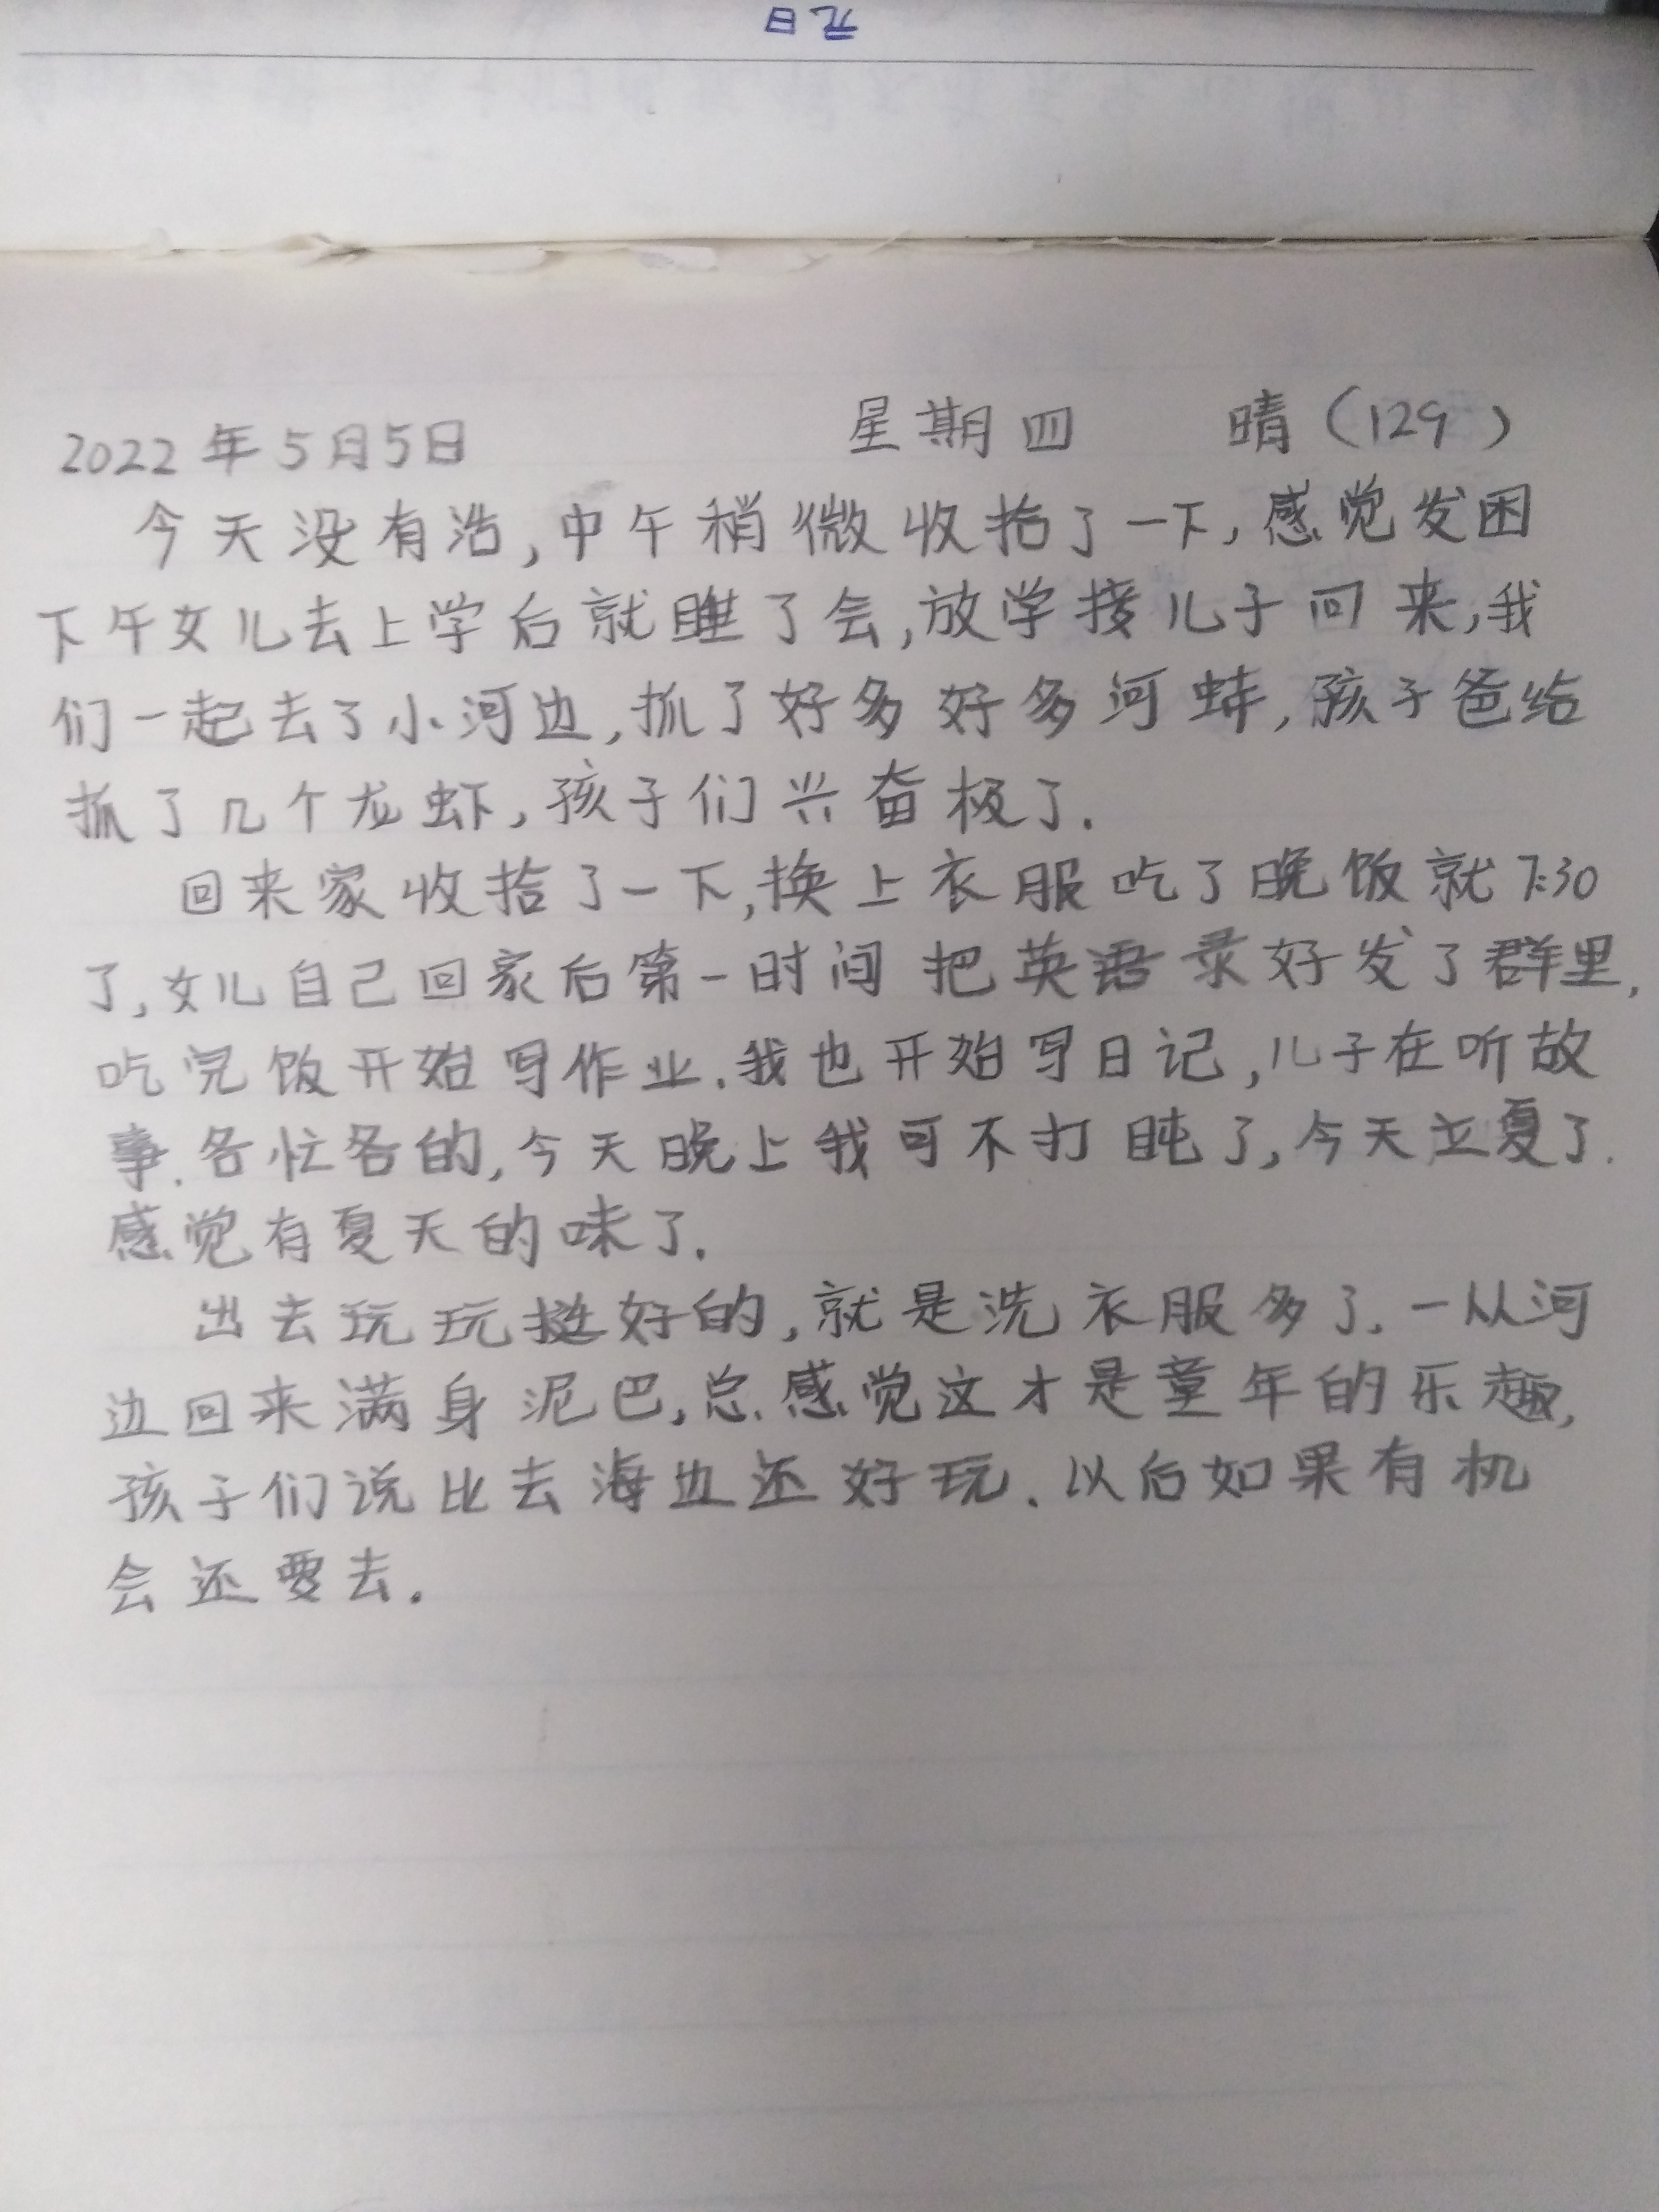 元日
2022年5月5日 星期四 晴（129）
今天没有活,中午稍微收拾了一下,感觉发困
下午女儿去上学后就睡了会,放学接儿子回来,我
们一起去了小河边,抓了好多好多河蚌,孩子爸给
抓了几个龙虾,孩子们兴奋极了.
回来家收拾了一下,换上衣服吃了晚饭就7:30
了,女儿自己回家后第一时间把英语录好发了群里,
吃完饭开始写作业.我也开始写日记,儿子在听故
事.各忙各的,今天晚上我可不打盹了,今天立夏了.
感觉有夏天的味了.
出去玩玩挺好的,就是洗衣服多了.一从河
边回来满身泥巴,总感觉这才是童年的乐趣,
孩子们说比去海边还好玩.以后如果有机
会还要去.